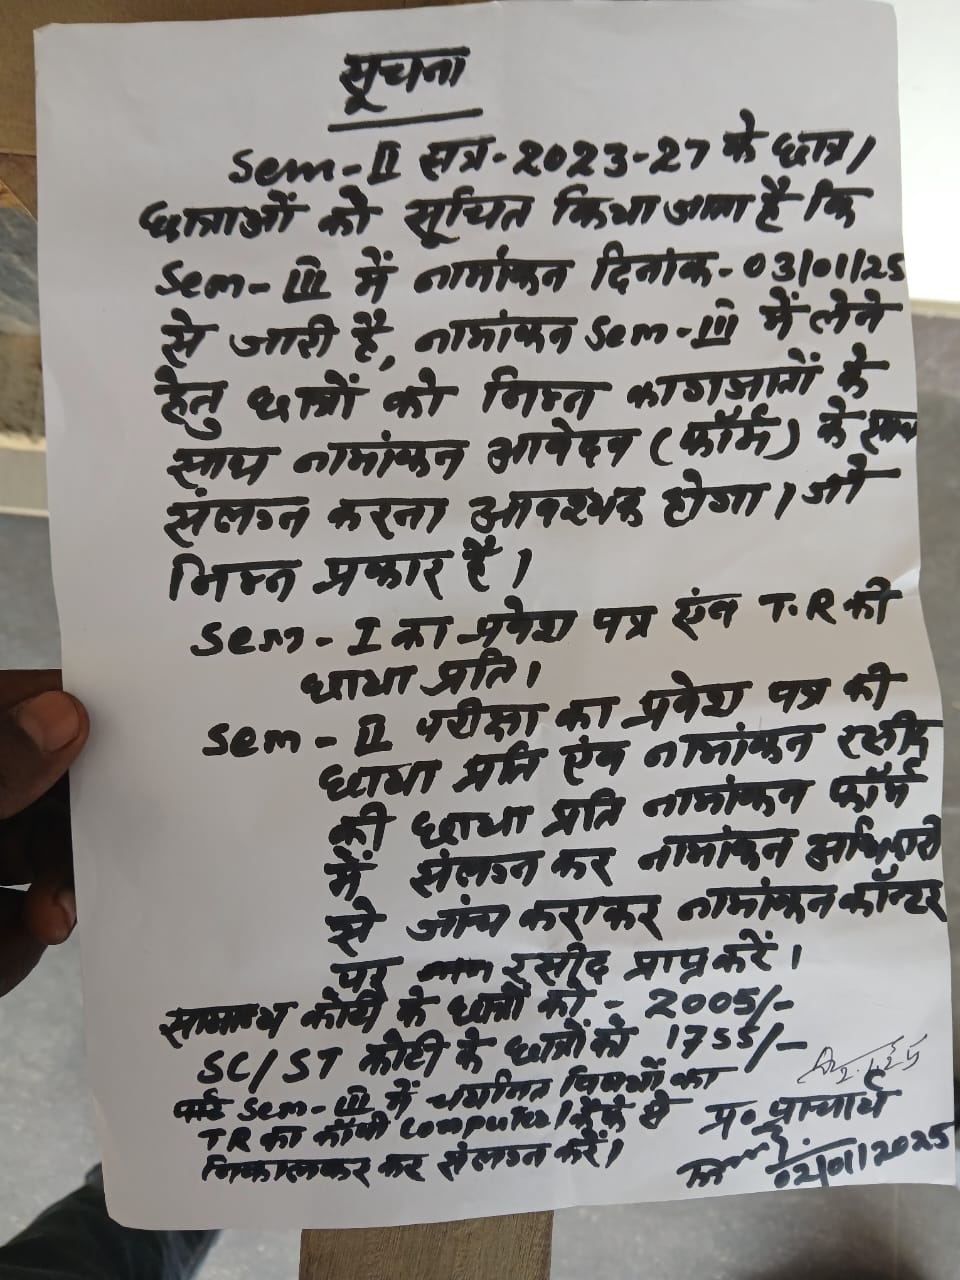 सूचना
Sem-II सत्र-2023-27 के छात्र/
छात्राओं को सूचित किया जाता है कि
Sem-III में नामांकन दिनांक-03/01/25
से जारी है, नामांकन Sem-III में लेने
हेतु छात्रों को निम्न कागजातों के
साथ नामांकन आवेदन (फॉर्म) के साथ
संलग्न करना आवश्यक होगा। जो
निम्न प्रकार है।
Sem-I का प्रवेश पत्र एंव T.R की
छाया प्रति।
Sem-II परीक्षा का प्रवेश पत्र की
छाया प्रति एंव नामांकन रसीद
की छाया प्रति नामांकन फॉर्म
में संलग्न कर नामांकन
से जांच कराकर नामांकन कॉन्टर
पर रसीद प्राप्त करें।
सामान्य कोटी के छात्रों को - 2005/-
SC/ST कोटी के छात्रों को 1755/-
Sem-III में चयनित विषयों का
TR का कॉपी से
निकालकर कर संलग्न करें।
2.1.25
प्र० प्राचार्य
02/01/2025